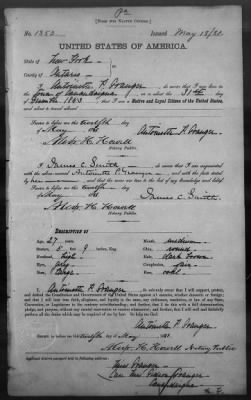 [FORM FOR NATIVE CITIZEN.]
No. 1352 Issued May 13/80
UNITED STATES OF AMERICA.
State of New York
County of Ontario
I, Antoinette P. Granger, do swear that I was born in the
Town of Canandaigua on or about the 31st day of
1853, that I am a Native and Loyal Citizen of the United States,
and about to travel abroad.
Sworn to before me this twelfth day
of May 1880
Antoinette P. Granger
Alex. H. Howell
Notary Public.
I, James C. Smith, do swear that I am acquainted
with the above named Antoinette P. Granger, and with the facts stated
by her and that the same are true to the best of my knowledge and belief.
Sworn to before me this twelfth day
of May 1880
James C. Smith
Alex. H. Howell
Notary Public.
DESCRIPTION OF
Age, 27 years. Mouth, medium
Stature, 5 feet 9 inches, Eng. Chin, round
Forehead, high Hair, dark brown
Eyes, Complexion, fair
Nose, large Face, oval
I, Antoinette P. Granger, do solemnly swear that I will support, protect,
and defend the Constitution and Government of the United States against all enemies, whether domestic or foreign;
and that I will bear true faith, allegiance, and loyalty to the same, any ordinance, resolution, or law of any State,
Convention, or Legislature to the contrary notwithstanding; and further, that I do this with a full determination,
pledge, and purpose, without any mental reservation or evasion whatsoever; and further, that I will well and faithfully
perform all the duties which may be required of me by law. So help me God.
Antoinette P. Granger
Sworn to before me this twelfth day of May 1880
Alex. H. Howell Notary Public
Applicant desires passport sent to following address:
Miss Granger
Granger
Canandaigua